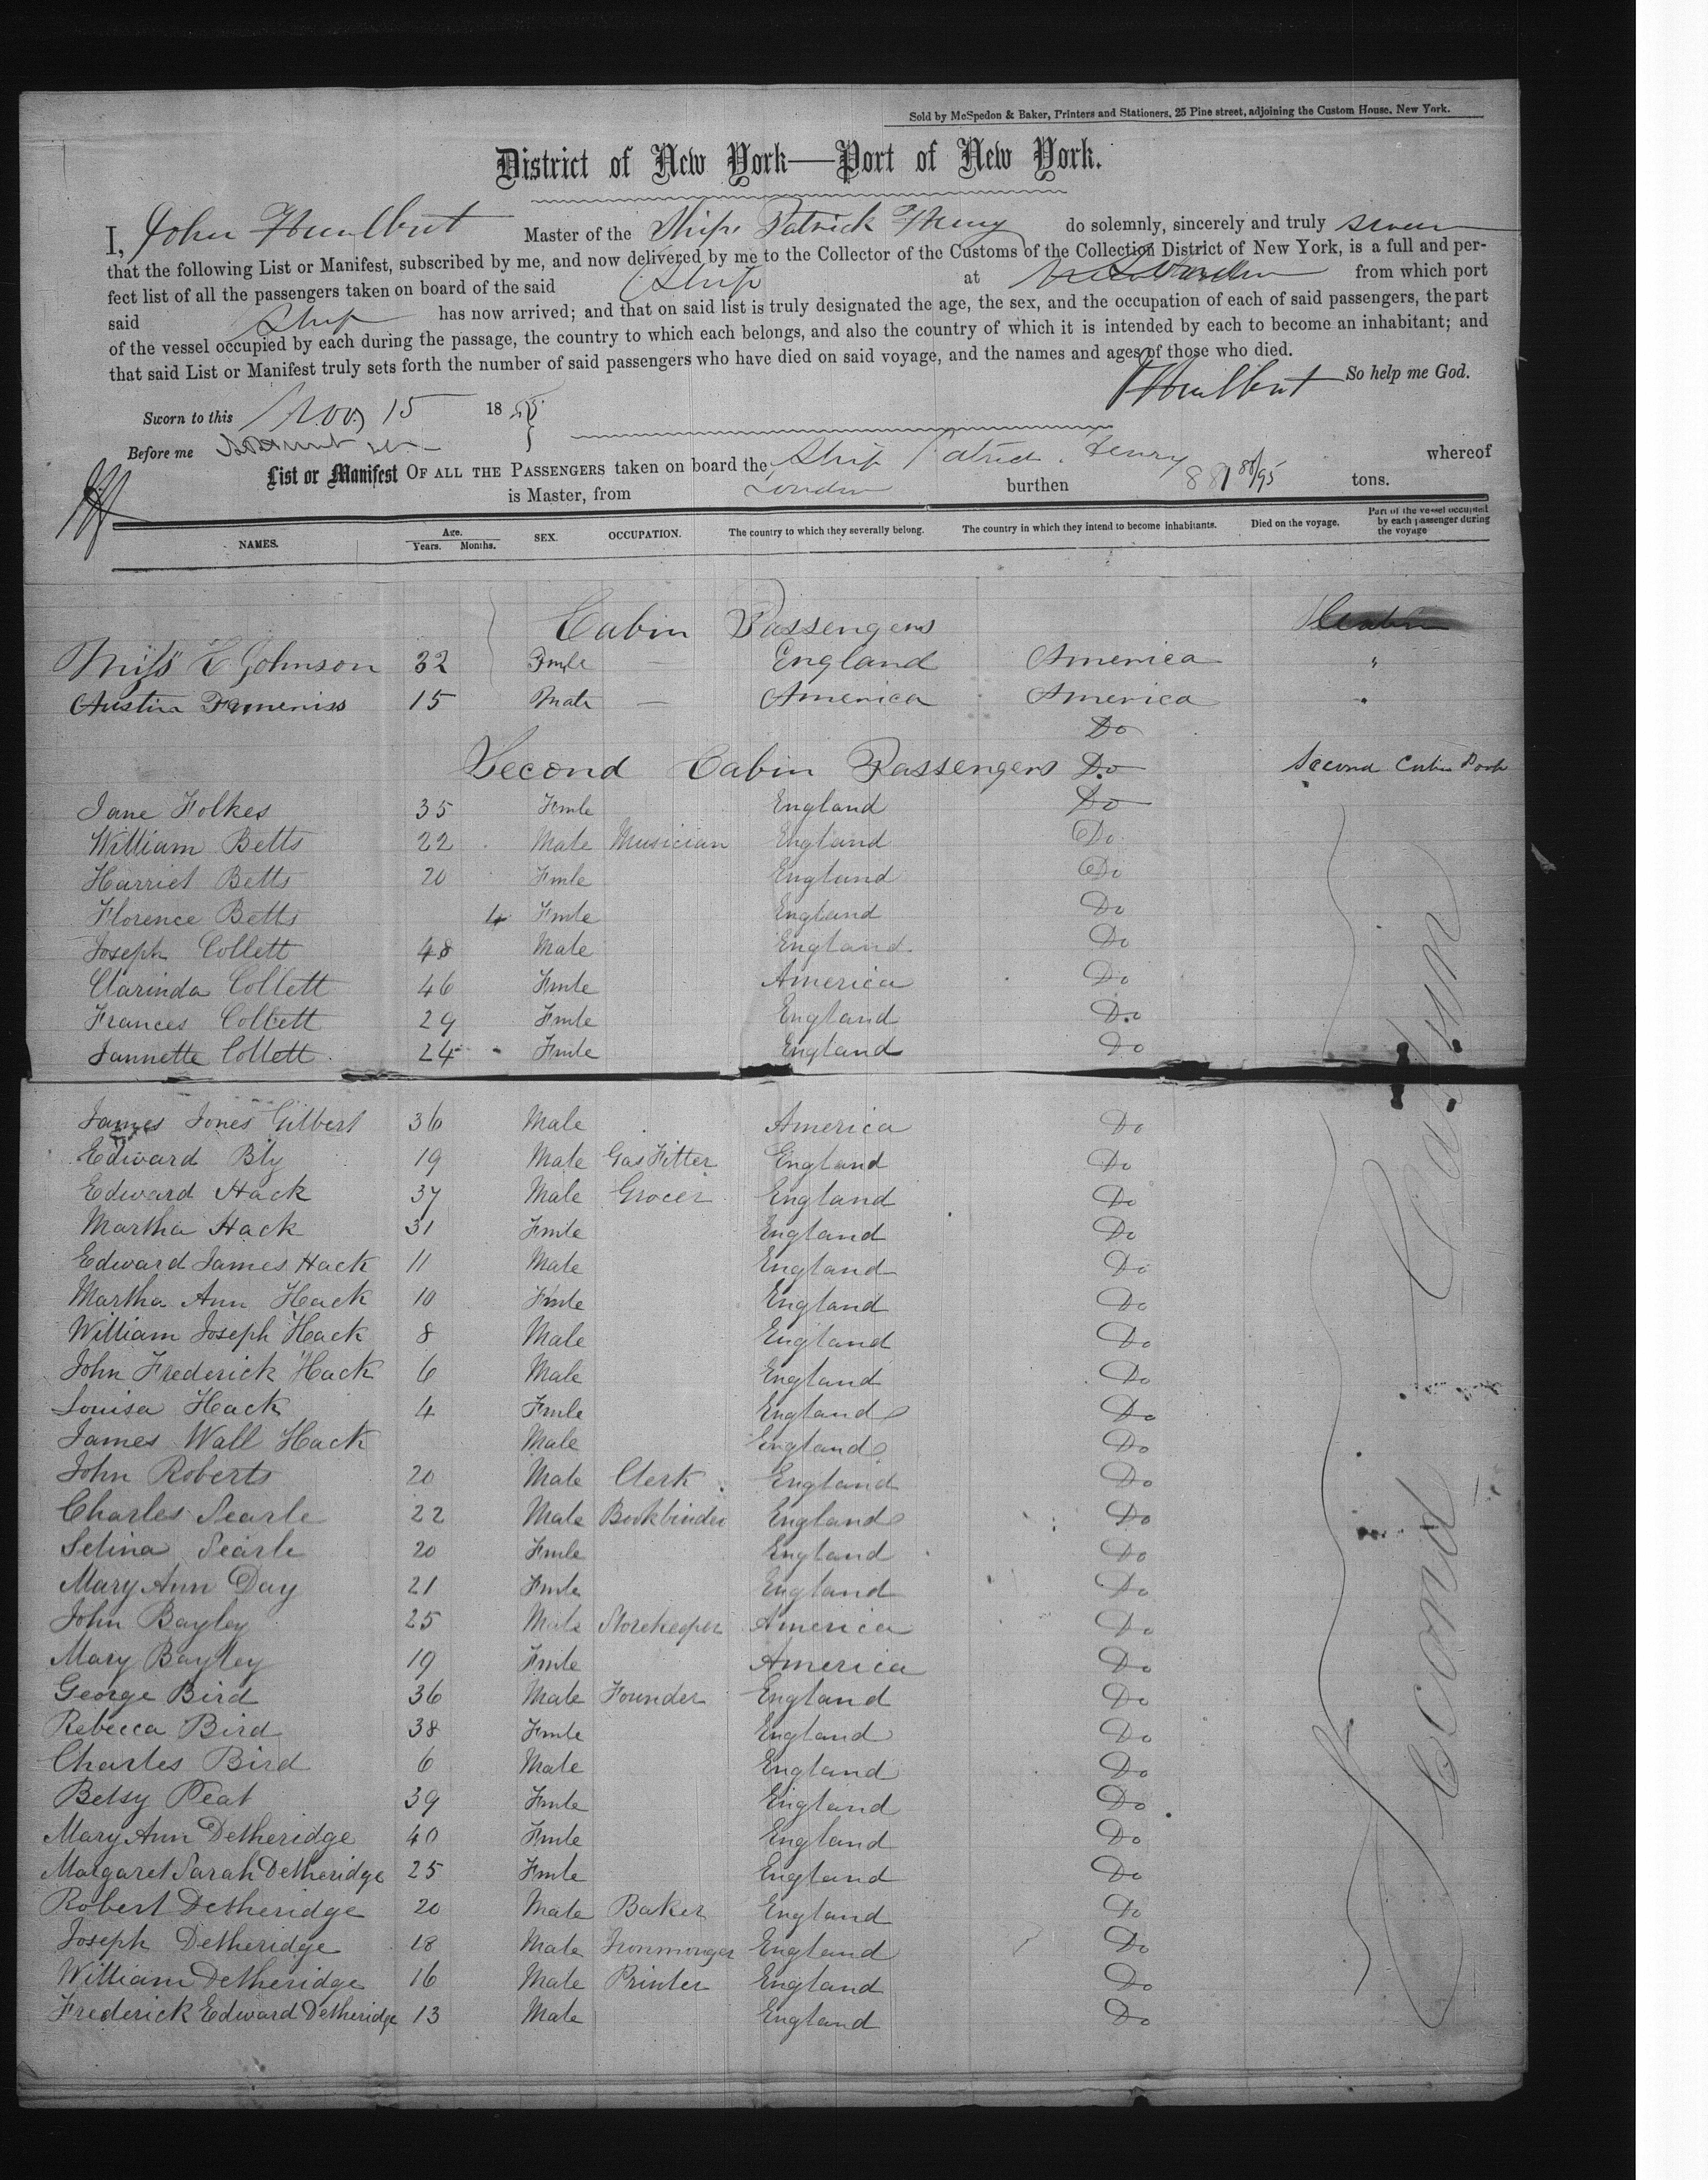 Sold by McSpedon & Baker, Printers and Stationers, 25 Pine street, adjoining the Custom House, New York.
District of New York—Port of New York.
I, John Hurlbut Master of the Ship Patrick Henry do solemnly, sincerely and truly swear
that the following List or Manifest, subscribed by me, and now delivered by me to the Collector of the Customs of the Collection District of New York, is a full and per-
fect list of all the passengers taken on board of the said Ship at London from which port
said Ship has now arrived; and that on said list is truly designated the age, the sex, and the occupation of each of said passengers, the part
of the vessel occupied by each during the passage, the country to which each belongs, and also the country of which it is intended by each to become an inhabitant; and
that said List or Manifest truly sets forth the number of said passengers who have died on said voyage, and the names and ages of those who died.
So help me God.
J Hurlbut
Sworn to this Nov 15 1855
Before me
List or Manifest OF ALL THE PASSENGERS taken on board the Ship Patrick Henry whereof
is Master, from London burthen 881 88/95 tons.
NAMES. Age. Years. Months. SEX. OCCUPATION. The country to which they severally belong. The country in which they intend to become inhabitants. Died on the voyage. Part of the vessel occupied by each passenger during the voyage
Cabin Passengers
Miss C Johnson 32 Fmle — England America "
Austin 15 Male — America America "
Do
Second Cabin Passengers Do Second Cabin
Jane Folkes 35 Fmle England Do
William Betts 22 Male Musician England Do
Harriet Betts 20 Fmle England Do
Florence Betts 4 Fmle England Do
Joseph Collett 48 Male England Do
Clarinda Collett 46 Fmle America Do
Frances Collett 29 Fmle England Do
Jannette Collett 24 Fmle England Do
James Jones Gilbert 36 Male America Do
Edward Bly 19 Male Gas Fitter England Do
Edward Hack 37 Male Grocer England Do
Martha Hack 31 Fmle England Do
Edward James Hack 11 Male England Do
Martha Ann Hack 10 Fmle England Do
William Joseph Hack 8 Male England Do
John Frederick Hack 6 Male England Do
Louisa Hack 4 Fmle England Do
James Wall Hack Male England Do
John Roberts 20 Male Clerk England Do
Charles Searle 22 Male Bookbinder England Do
Selina Searle 20 Fmle England Do
Mary Ann Day 21 Fmle England Do
John Bayley 25 Male Storekeeper America Do
Mary Bayley 19 Fmle America Do
George Bird 36 Male Founder England Do
Rebecca Bird 38 Fmle England Do
Charles Bird 6 Male England Do
Betsy Peat 39 Fmle England Do
Mary Ann Detheridge 40 Fmle England Do
Margaret Sarah Detheridge 25 Fmle England Do
Robert Detheridge 20 Male Baker England Do
Joseph Detheridge 18 Male Ironmonger England Do
William Detheridge 16 Male Printer England Do
Frederick Edward Detheridge 13 Male England Do
Second Cabin